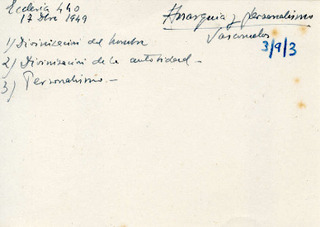 Ecclesia 440
17 Dbre 1949
Anarquia y personalismo
Vasconcelos
3/9/3
1) Divinización del hombre
2) Divinización de la autoridad —
3) Personalismo —